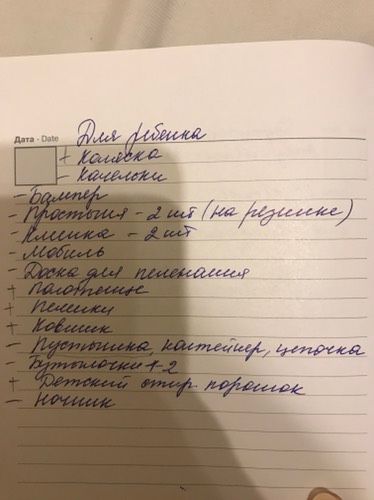 Дата - Date
Для ребенка
+ Коляска
- Качельки
- Бампер
- Простыня - 2 шт (на резинке)
- Клеенка - 2 шт
- Мобиль
- Доска для пеленания
+ Полотенце
+ Пеленки
+ Ковшик
- Пустышка, контейнер, цепочка
- Бутылочки 1-2
+ Детский стир. порошок
- Ночник